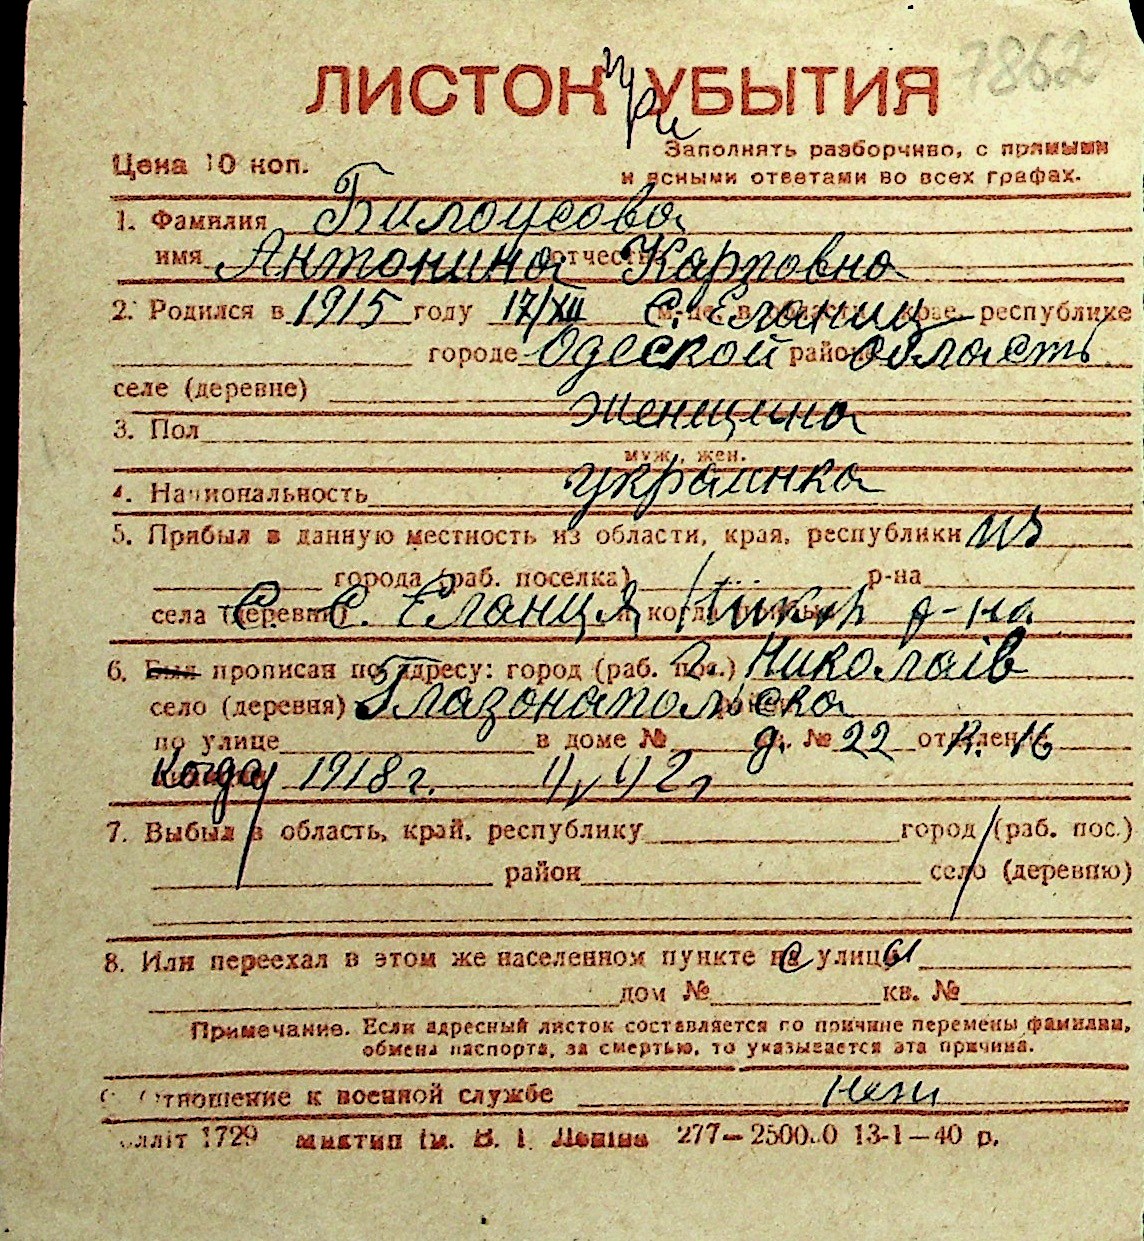 7862
ЛИСТОК при УБЫТИЯ
Цена 10 коп.
Заполнять разборчиво, с прямыми
и ясными ответами во всех графах.
1. Фамилия Билоусова
имя Антонина отчество Карповна
2. Родился в 1915 году 17/XII с. Еланец крае, республике
городе Одеской районе область
селе (деревне)
3. Пол женщина
муж., жен.
4. Национальность украинка
5. Прибыл в данную местность из области, края, республики из
города (раб. поселка) р-на
села (деревни) С. С. Еланця и когда р-на
6. Был прописан по адресу: город (раб. пос.) г. Николаів
село (деревня)
по улице в доме № д. № 22 к. 16
Когда 1918 г. 42
7. Выбыл в область, край, республику город (раб. пос.)
район село (деревню)
8. Или переехал в этом же населенном пункте на с улицы
дом № кв. №
Примечание. Если адресный листок составляется по причине перемены фамилии,
обмена паспорта, за смертью, то указывается эта причина.
Отношение к военной службе нет
1729 ім. В. І. Леніна 277— 13-1—40 р.